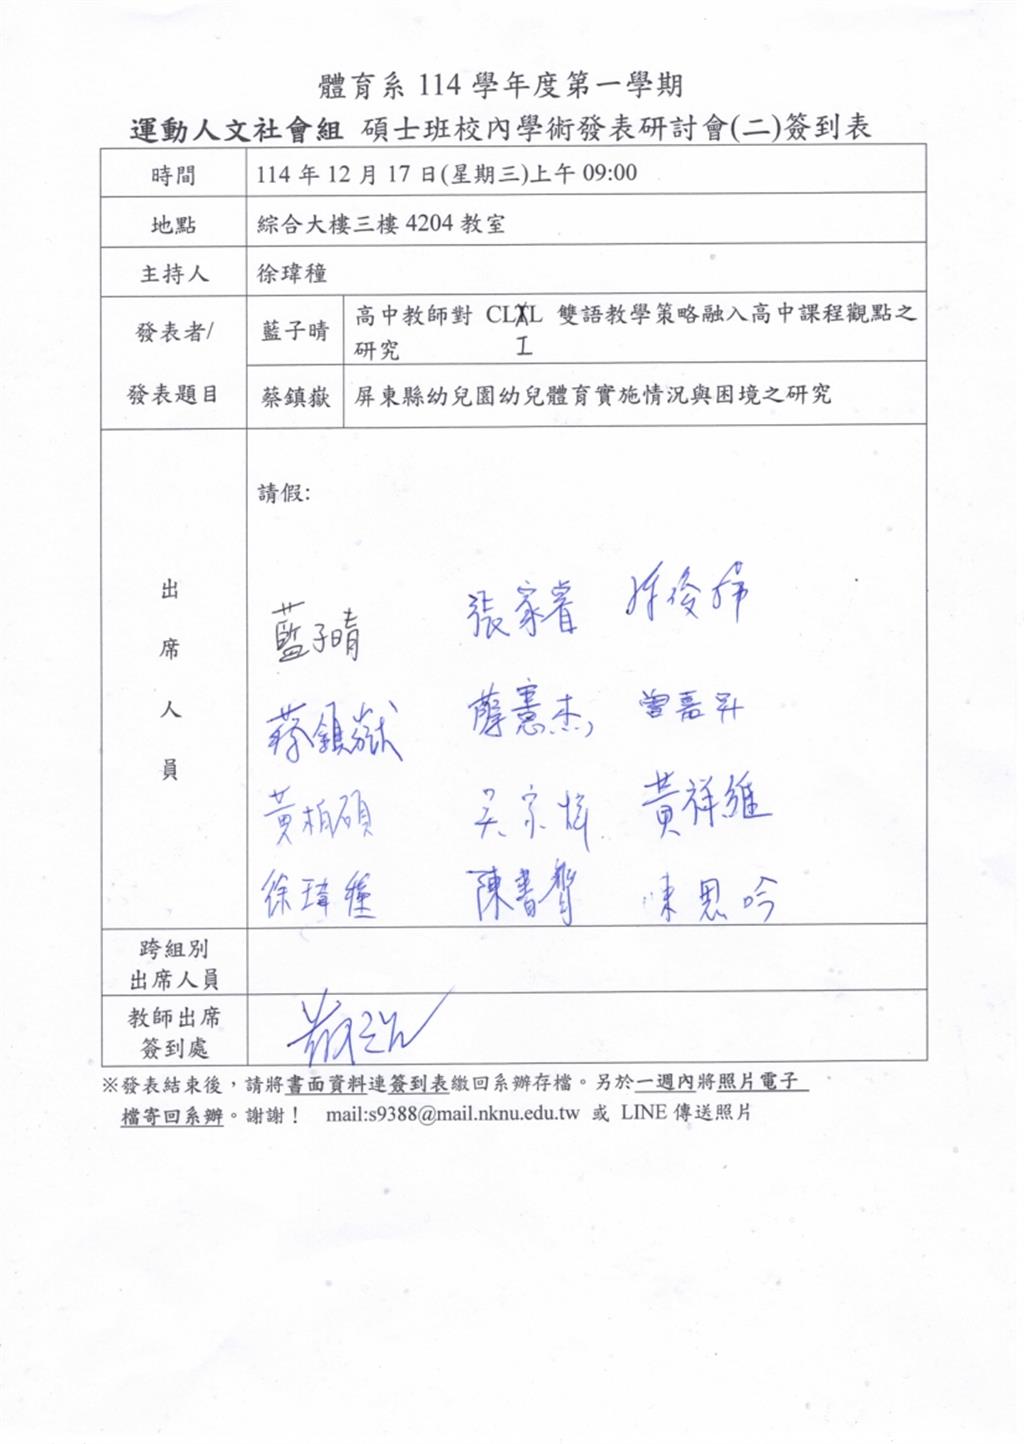 體育系 114 學年度第一學期
運動人文社會組 碩士班校內學術發表研討會(二)簽到表
時間 114 年 12 月 17 日(星期三)上午 09:00
地點 綜合大樓三樓 4204 教室
主持人 徐瑋穜
發表者/ 藍子晴 高中教師對 CLIL 雙語教學策略融入高中課程觀點之
研究 I
發表題目 蔡鎮嶽 屏東縣幼兒園幼兒體育實施情況與困境之研究
請假:
出
席
人
員
藍子晴 張家睿 俊
蔡鎮嶽 薛憲杰 曾嘉昇
黃柏碩 吳宗 黃祥維
徐瑋穜 陳書 陳思吟
跨組別
出席人員
教師出席
簽到處
※發表結束後,請將書面資料連簽到表繳回系辦存檔。另於一週內將照片電子
檔寄回系辦。謝謝! mail:s9388@mail.nknu.edu.tw 或 LINE 傳送照片